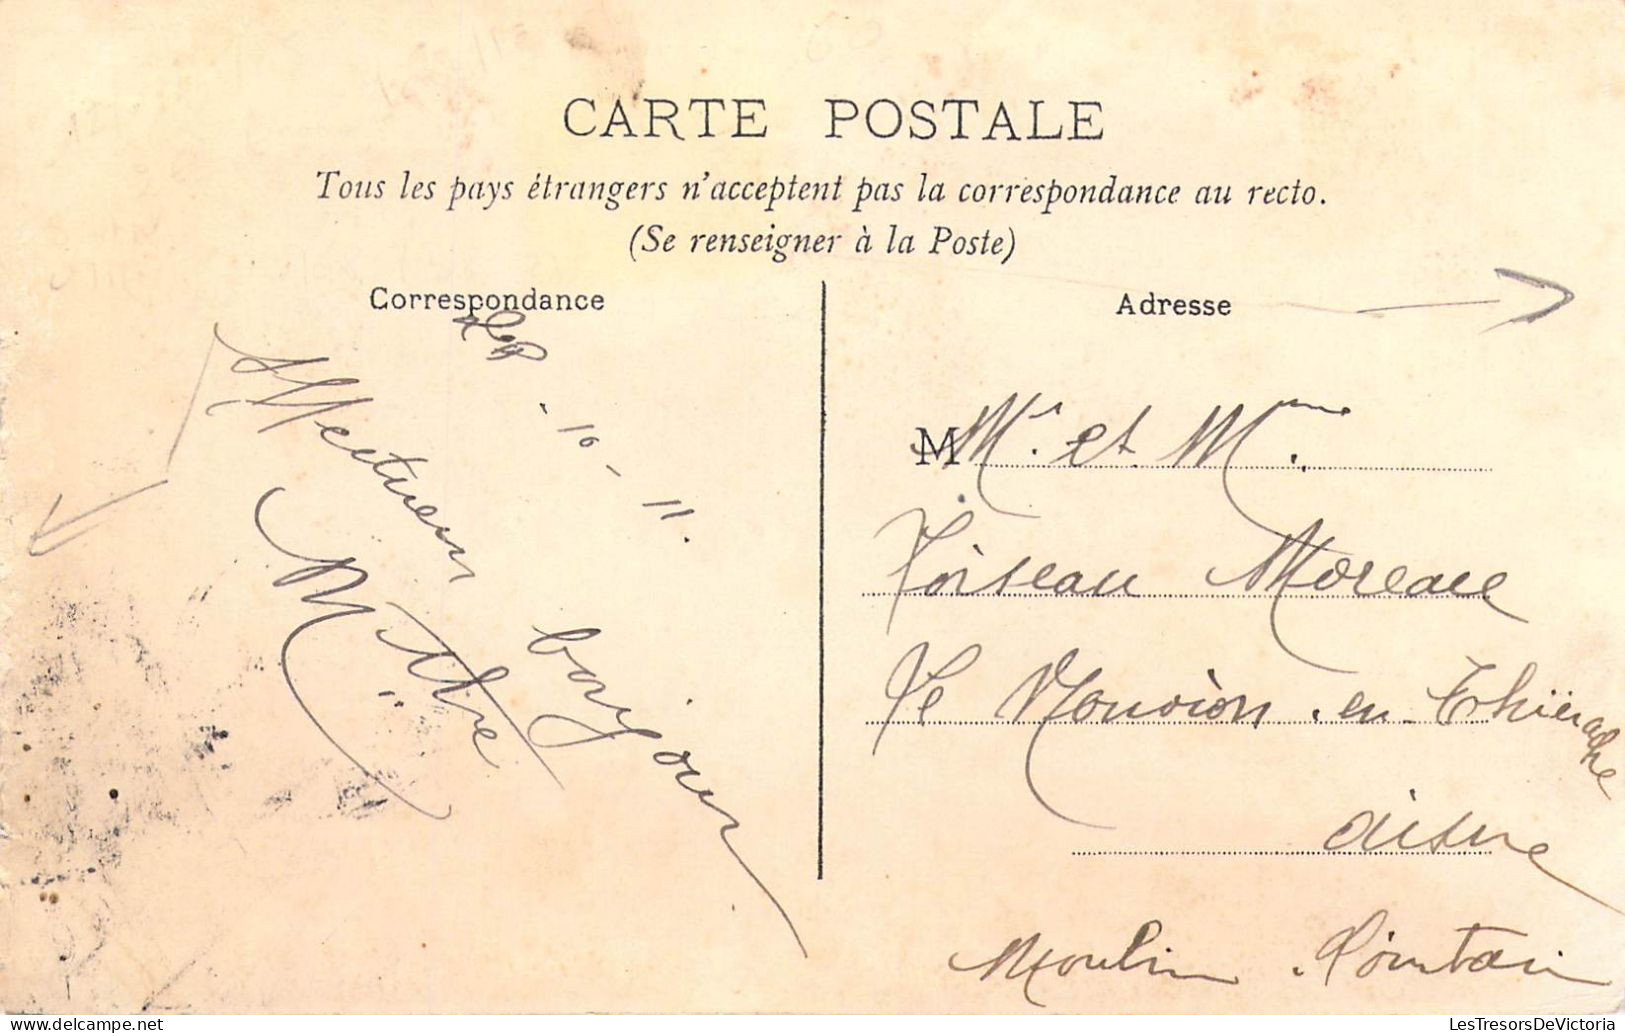 CARTE POSTALE
Tous les pays étrangers n'acceptent pas la correspondance au recto.
(Se renseigner à la Poste)
Correspondance
10 - 11.
bonjour
Adresse
M Mr. et Mme.
Toiseau Moreau
Le Nouvion. en Thiérache
aisne
Moulin
LesTresorsDeVictoria.com